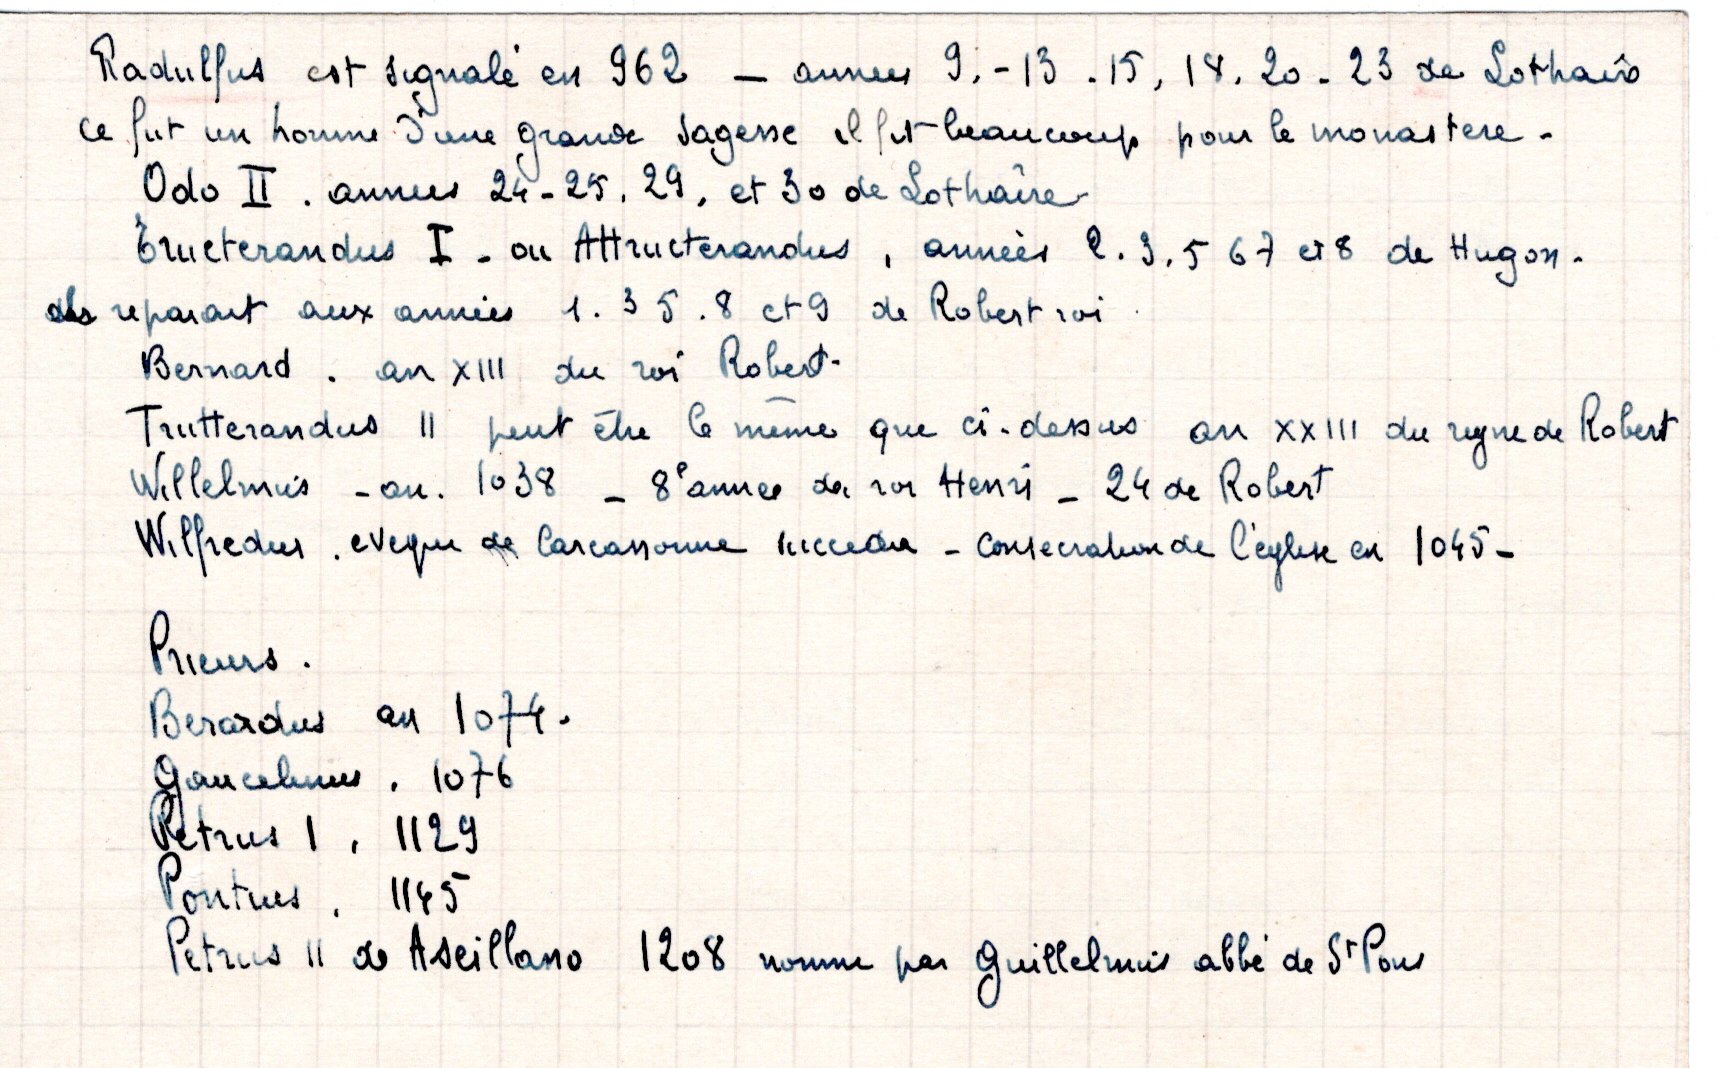 Radulfus est signalé en 962 — annees 9. - 13 . 15, 18. 20 - 23 de Lothaire
ce fut un homme d'une grande sagesse il fit beaucoup pour le monastere -
Odo II . annees 24 - 25. 29, et 30 de Lothaîre
Tructerandus I - ou Attructerandus , années 2. 3. 5 6 7 et 8 de Hugon -
reparait aux années 1. 3 5 . 8 et 9 de Robert roi .
Bernard . an XIII du roi Robert -
Trutterandus II peut être le même que ci-dessus an XXIII du regne de Robert
Willelmus - an. 1038 - 8e annee du roi Henri - 24 de Robert
Wilfredus . eveque de Carcassonne succeda - consecration de l'église en 1045 -
Prieurs .
Berardus an 1074 .
Gaucelmus . 1076
Petrus I . 1129
Pontius . 1145
Petrus II de Aseillano 1208 nomme par Guillelmus abbé de St Pons